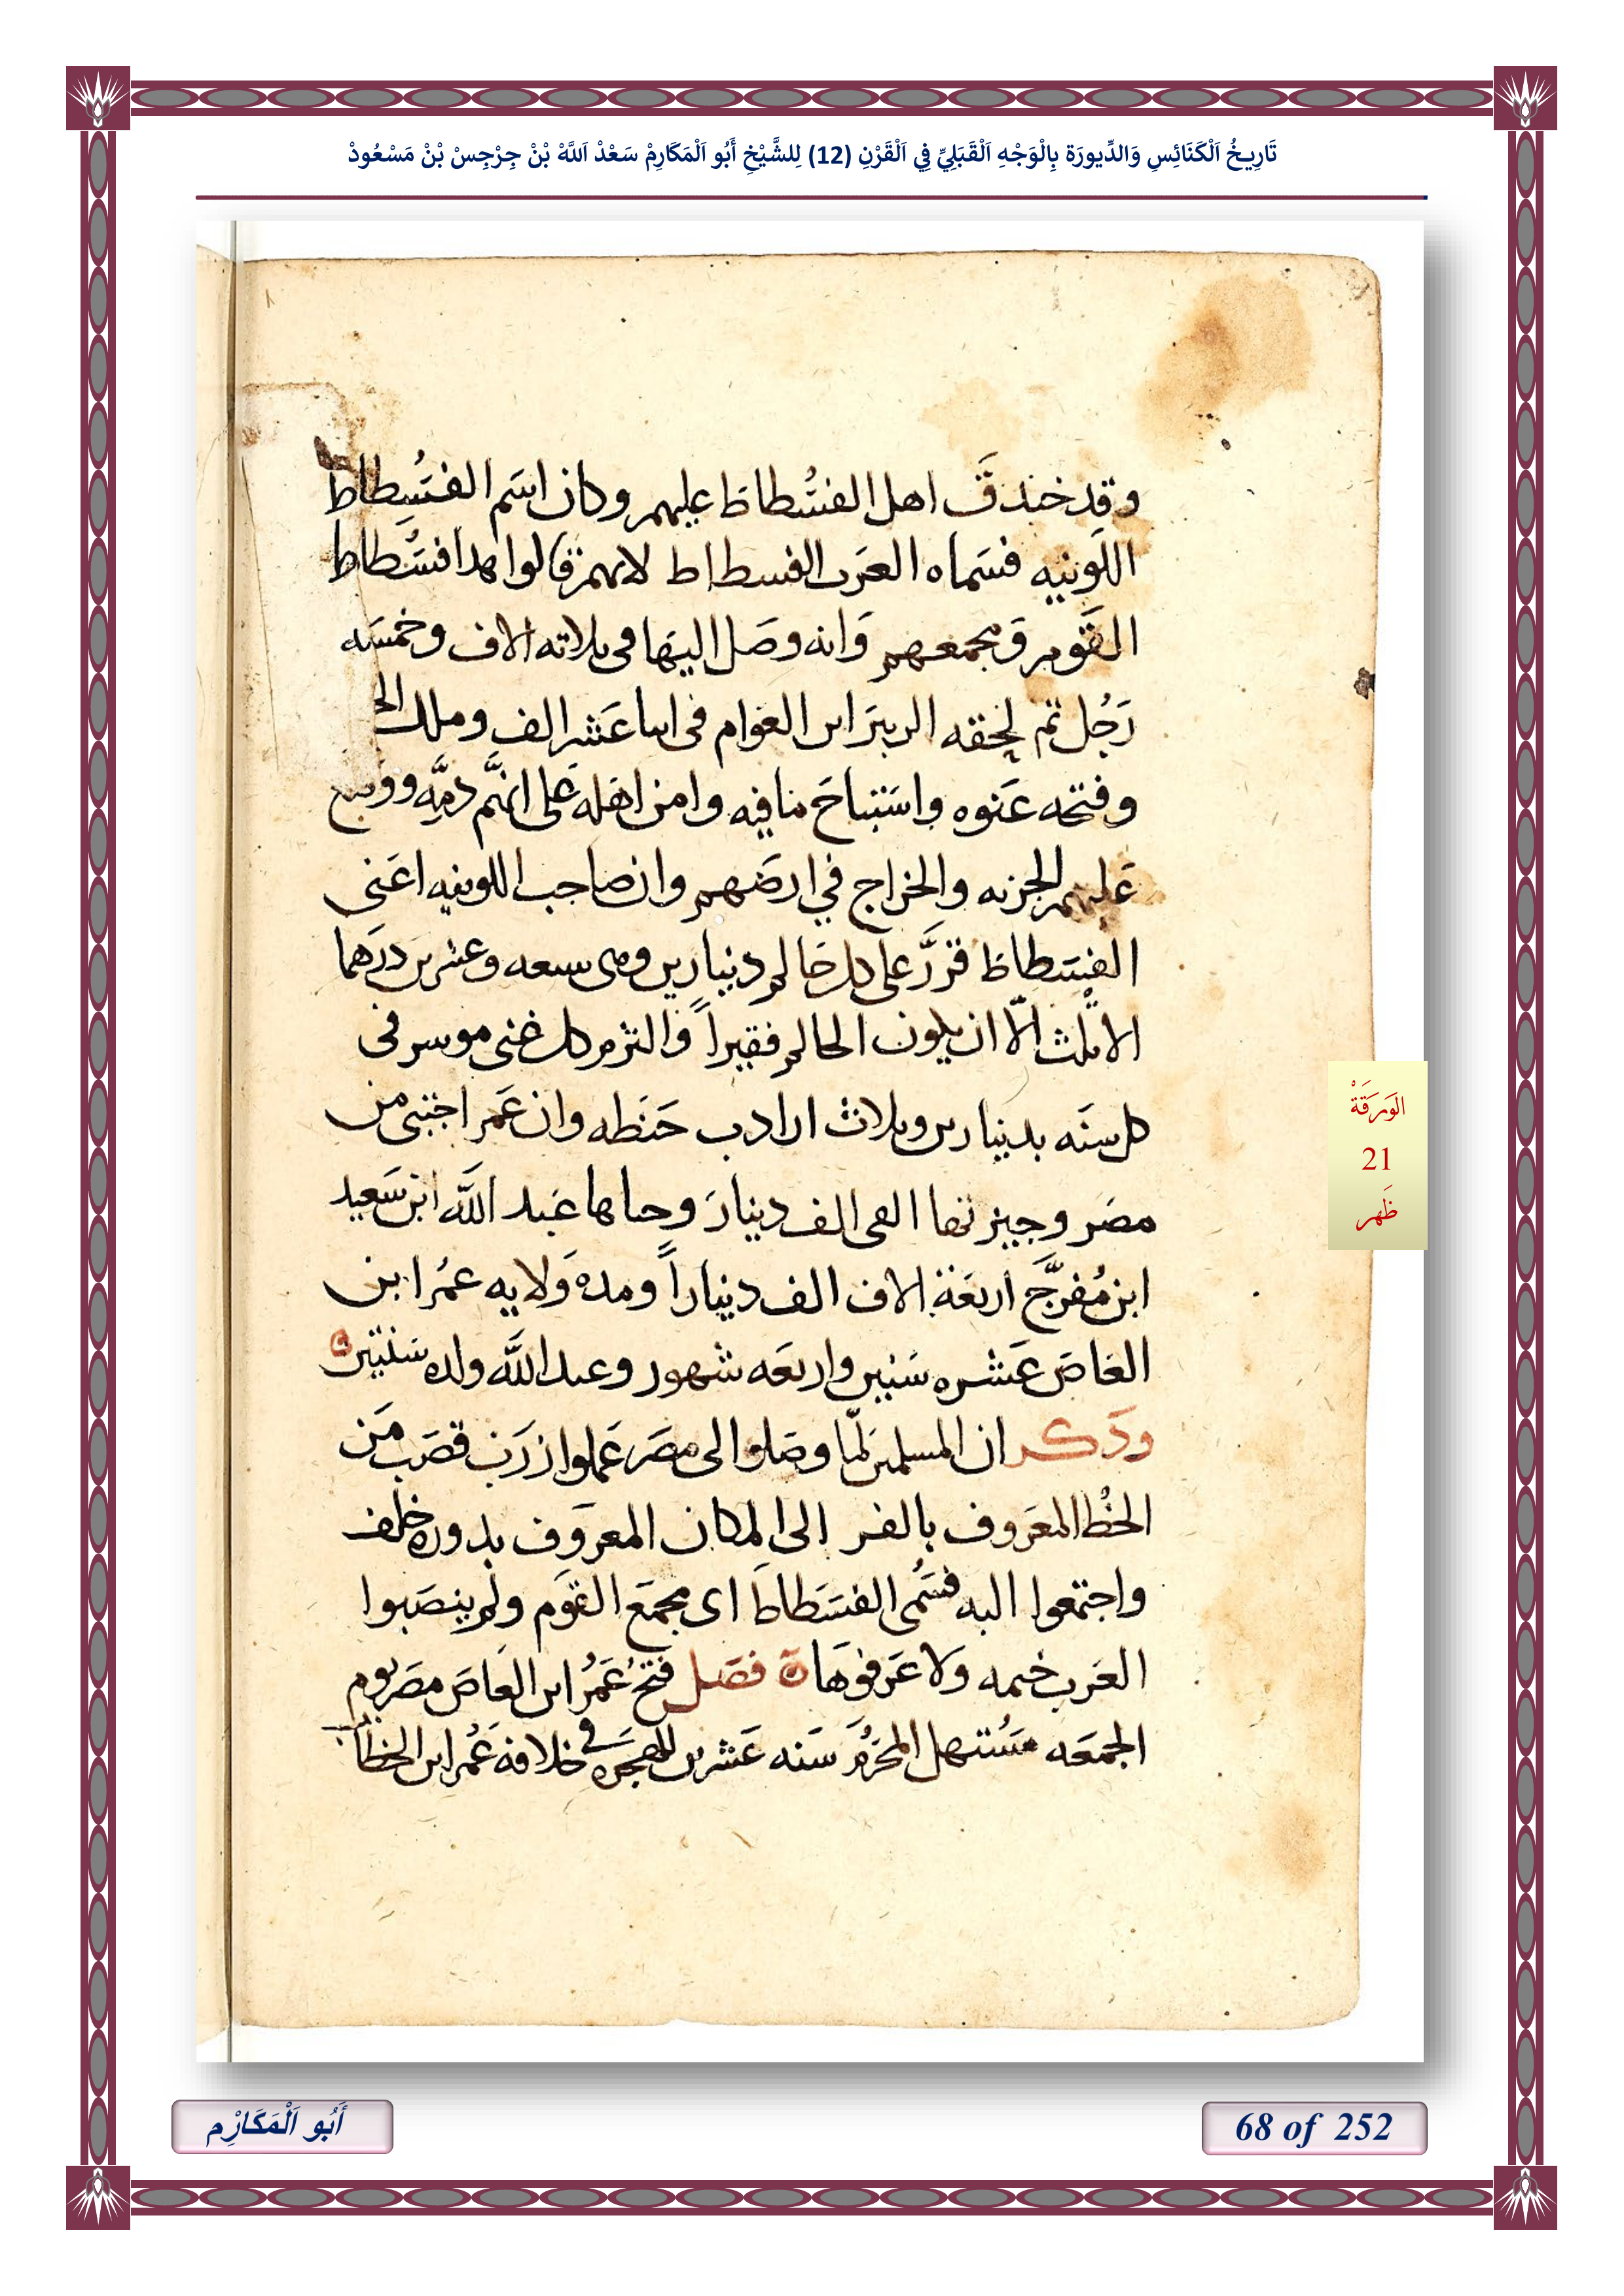 تَارِيخُ اَلْكَنَائِسِ وَالدِّيورَة بِالْوَجْهِ اَلْقَبَلِيِّ فِي اَلْقَرْنِ (12) لِلشَّيْخِ أَبُو اَلْمَكَارِمْ سَعْدْ اَللَّهْ بْنْ جِرْجِسْ بْنْ مَسْعُودْ
وقد خندق اهل الفسُطاط عليهم وكان اسَم الفسُطاط
اللونيه فسَماه العرَب الفسطاط لانهم قالوا هدا فسُطاط
القَوم وَمجمعهم وَانه وصَل اليهَا فى ثلاثه الاف وخمسَه
رَجُل تم لحقه الزبيَر ابن العوام فى اثنا عَشر الف وملك
وفتحه عَنوه واسَتباحَ مافيه وامن اهله عَلى انهَّم ذمِّه ووضع
عليهم الجزيه والخراج في ارضَهم وان صاحب اللونيه اعَنى
الفسَطاط قررَّ على كل حَالم دينارين وهى سبعه وعشرين درَهما
الا ثلث الّا ان يكون الحالم فقيراً وَالتزم كل غنى موسر فى
كل سنَه بدينارين وثلاث ارادب حَنطه وان عَمر اجتبى من
مصَر وجيزتها الفى الف دينارَ وجباها عَبد اللّه ابن سَعيد
ابن مُفرَّج اربَعَة الاف الف ديناراً ومدة وَلايه عمُر ابن
العَاصَ عَشره سَنين واربعَه شهور وعبد اللّه ولده سَنتين ه
وَدَكر ان المسلمين لمّا وصَلوا الى مصَر عَملوا زرَب قصَب مَن
الخُط المعَروف بالفر الى المكان المعروَف بدوره خلف
واجتمَعوا اليه فسَمُى الفسَطاطَ اى مجمَع القوَم ولم ينصَبوا
العَرب خيمه وَلا عَرفوهَا ة فصَل فتحَ عَمُر ابن العَاصَ مصَر يوم
الجمَعَه مسُتهل المحرَم سَنه عَشرين للهجَره في خلافة عَمُر ابن الخطاب
الوَرَقَةْ
21
ظَهر
أَبُو اَلْمَكَارْم
68 of 252